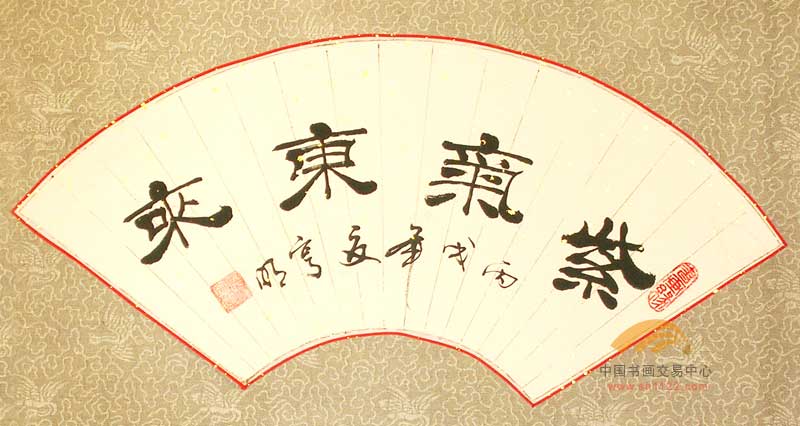 紫氣東來
丙戌年夏亨明
中国书画交易中心
www.sh1122.com